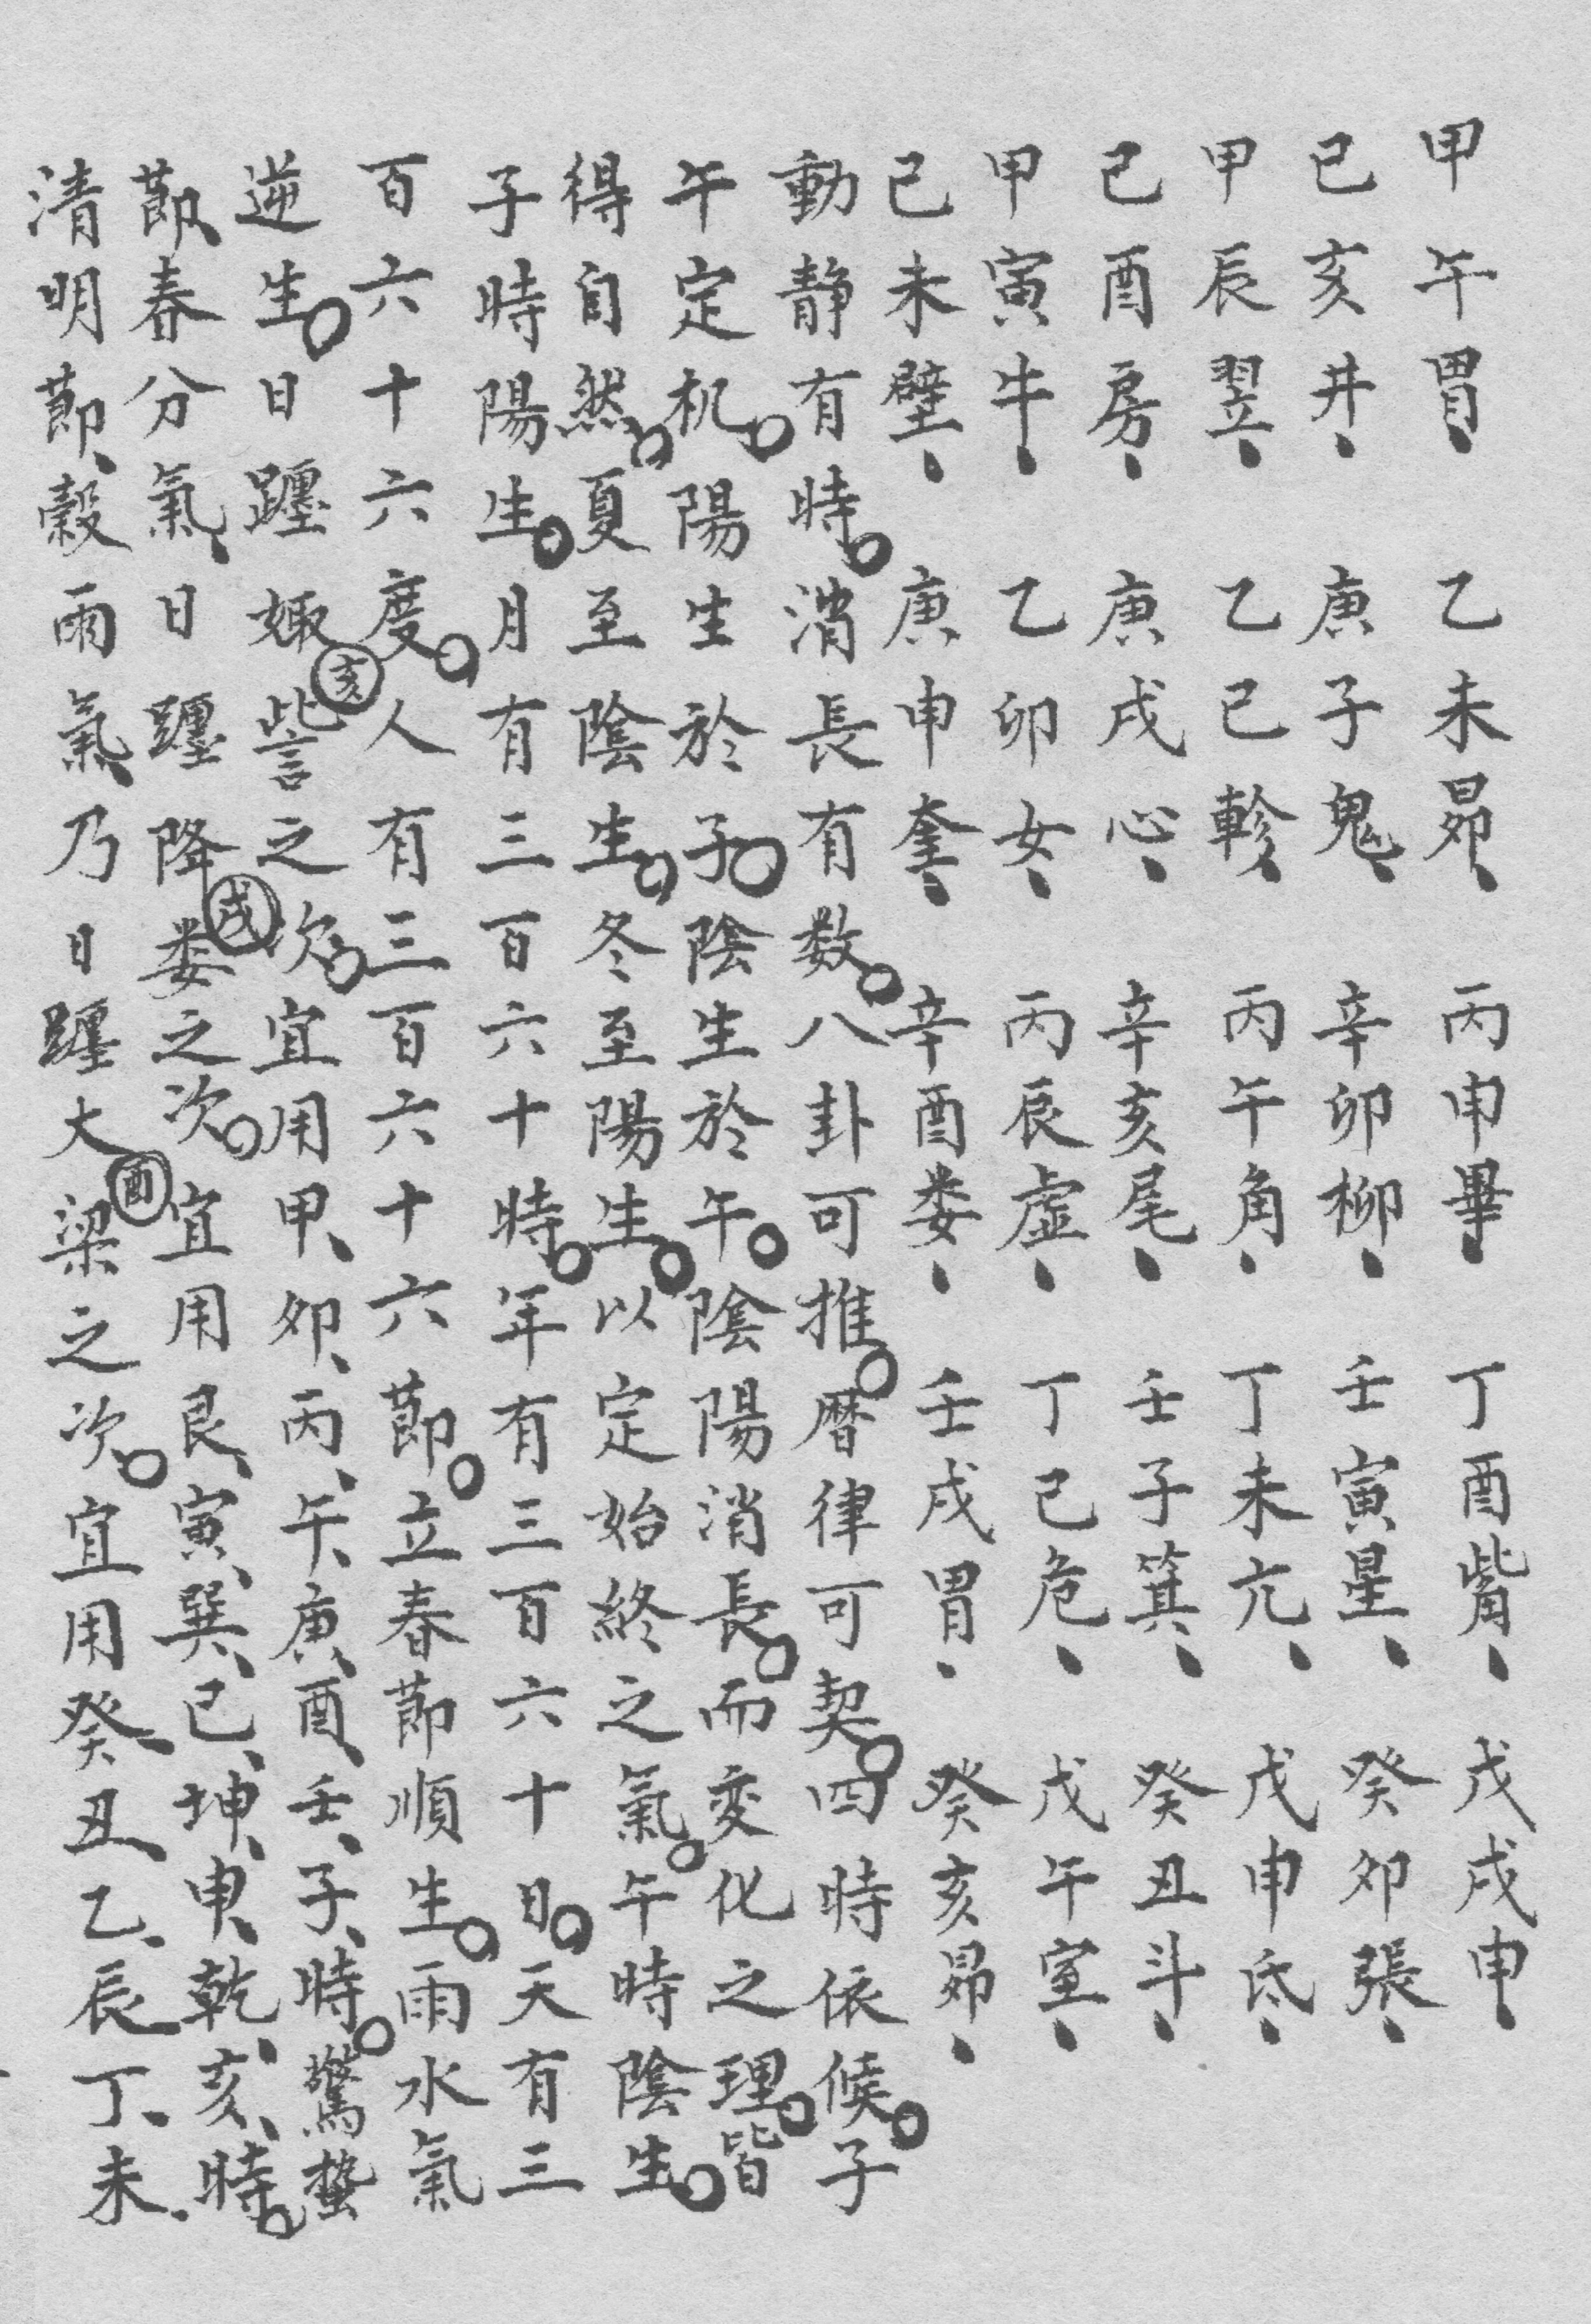 甲午胃、乙未昴、丙申畢、丁酉觜、戊戌申、
己亥井、庚子鬼、辛卯柳、壬寅星、癸卯張、
甲辰翌、乙巳軫、丙午角、丁未亢、戊申氐、
己酉房、庚戌心、辛亥尾、壬子箕、癸丑斗、
甲寅牛、乙卯女、丙辰虛、丁巳危、戊午室、
己未壁、庚申奎、辛酉娄、壬戌胃、癸亥昴、
動静有時。消長有数。八卦可推。暦律可契。四時依候。子
午定机。陽生於子。陰生於午。陰陽消長。而变化之理。皆
得自然。夏至陰生。冬至陽生。以定始終之氣。午時陰生。
子時陽生。月有三百六十時。年有三百六十日。天有三
百六十六度。人有三百六十六節。立春節順生。雨水氣
逆生。日躔娵亥訾之次。宜用甲、卯、丙、午、庚、酉、壬、子、時。驚蟄
節、春分氣、日躔降戌娄之次。宜用艮、寅、巽、巳、坤、申、乾、亥、時。
清明節、穀雨氣、乃日躔大酉梁之次。宜用癸、丑、乙、辰、丁、未、